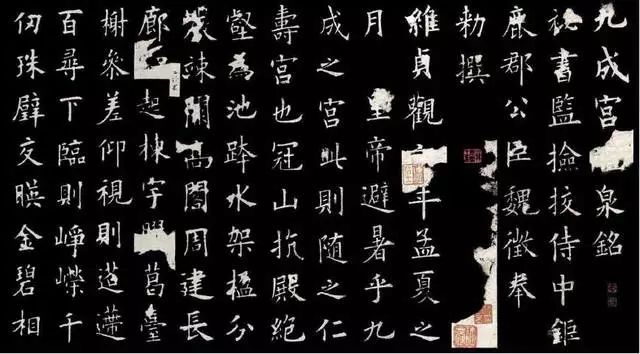 九成宮泉銘
祕書監撿挍侍中鉅
鹿郡公臣魏徵奉
勑撰
維貞觀年孟夏之
月皇帝避暑乎九
成之宮此則隨之仁
壽宮也冠山抗殿絕
壑為池跨水架楹分
巖竦闕高閣周建長
廊起棟宇葛臺
榭參差仰視則迢遰
百尋下臨則崢嶸千
仞珠璧交暎金碧相